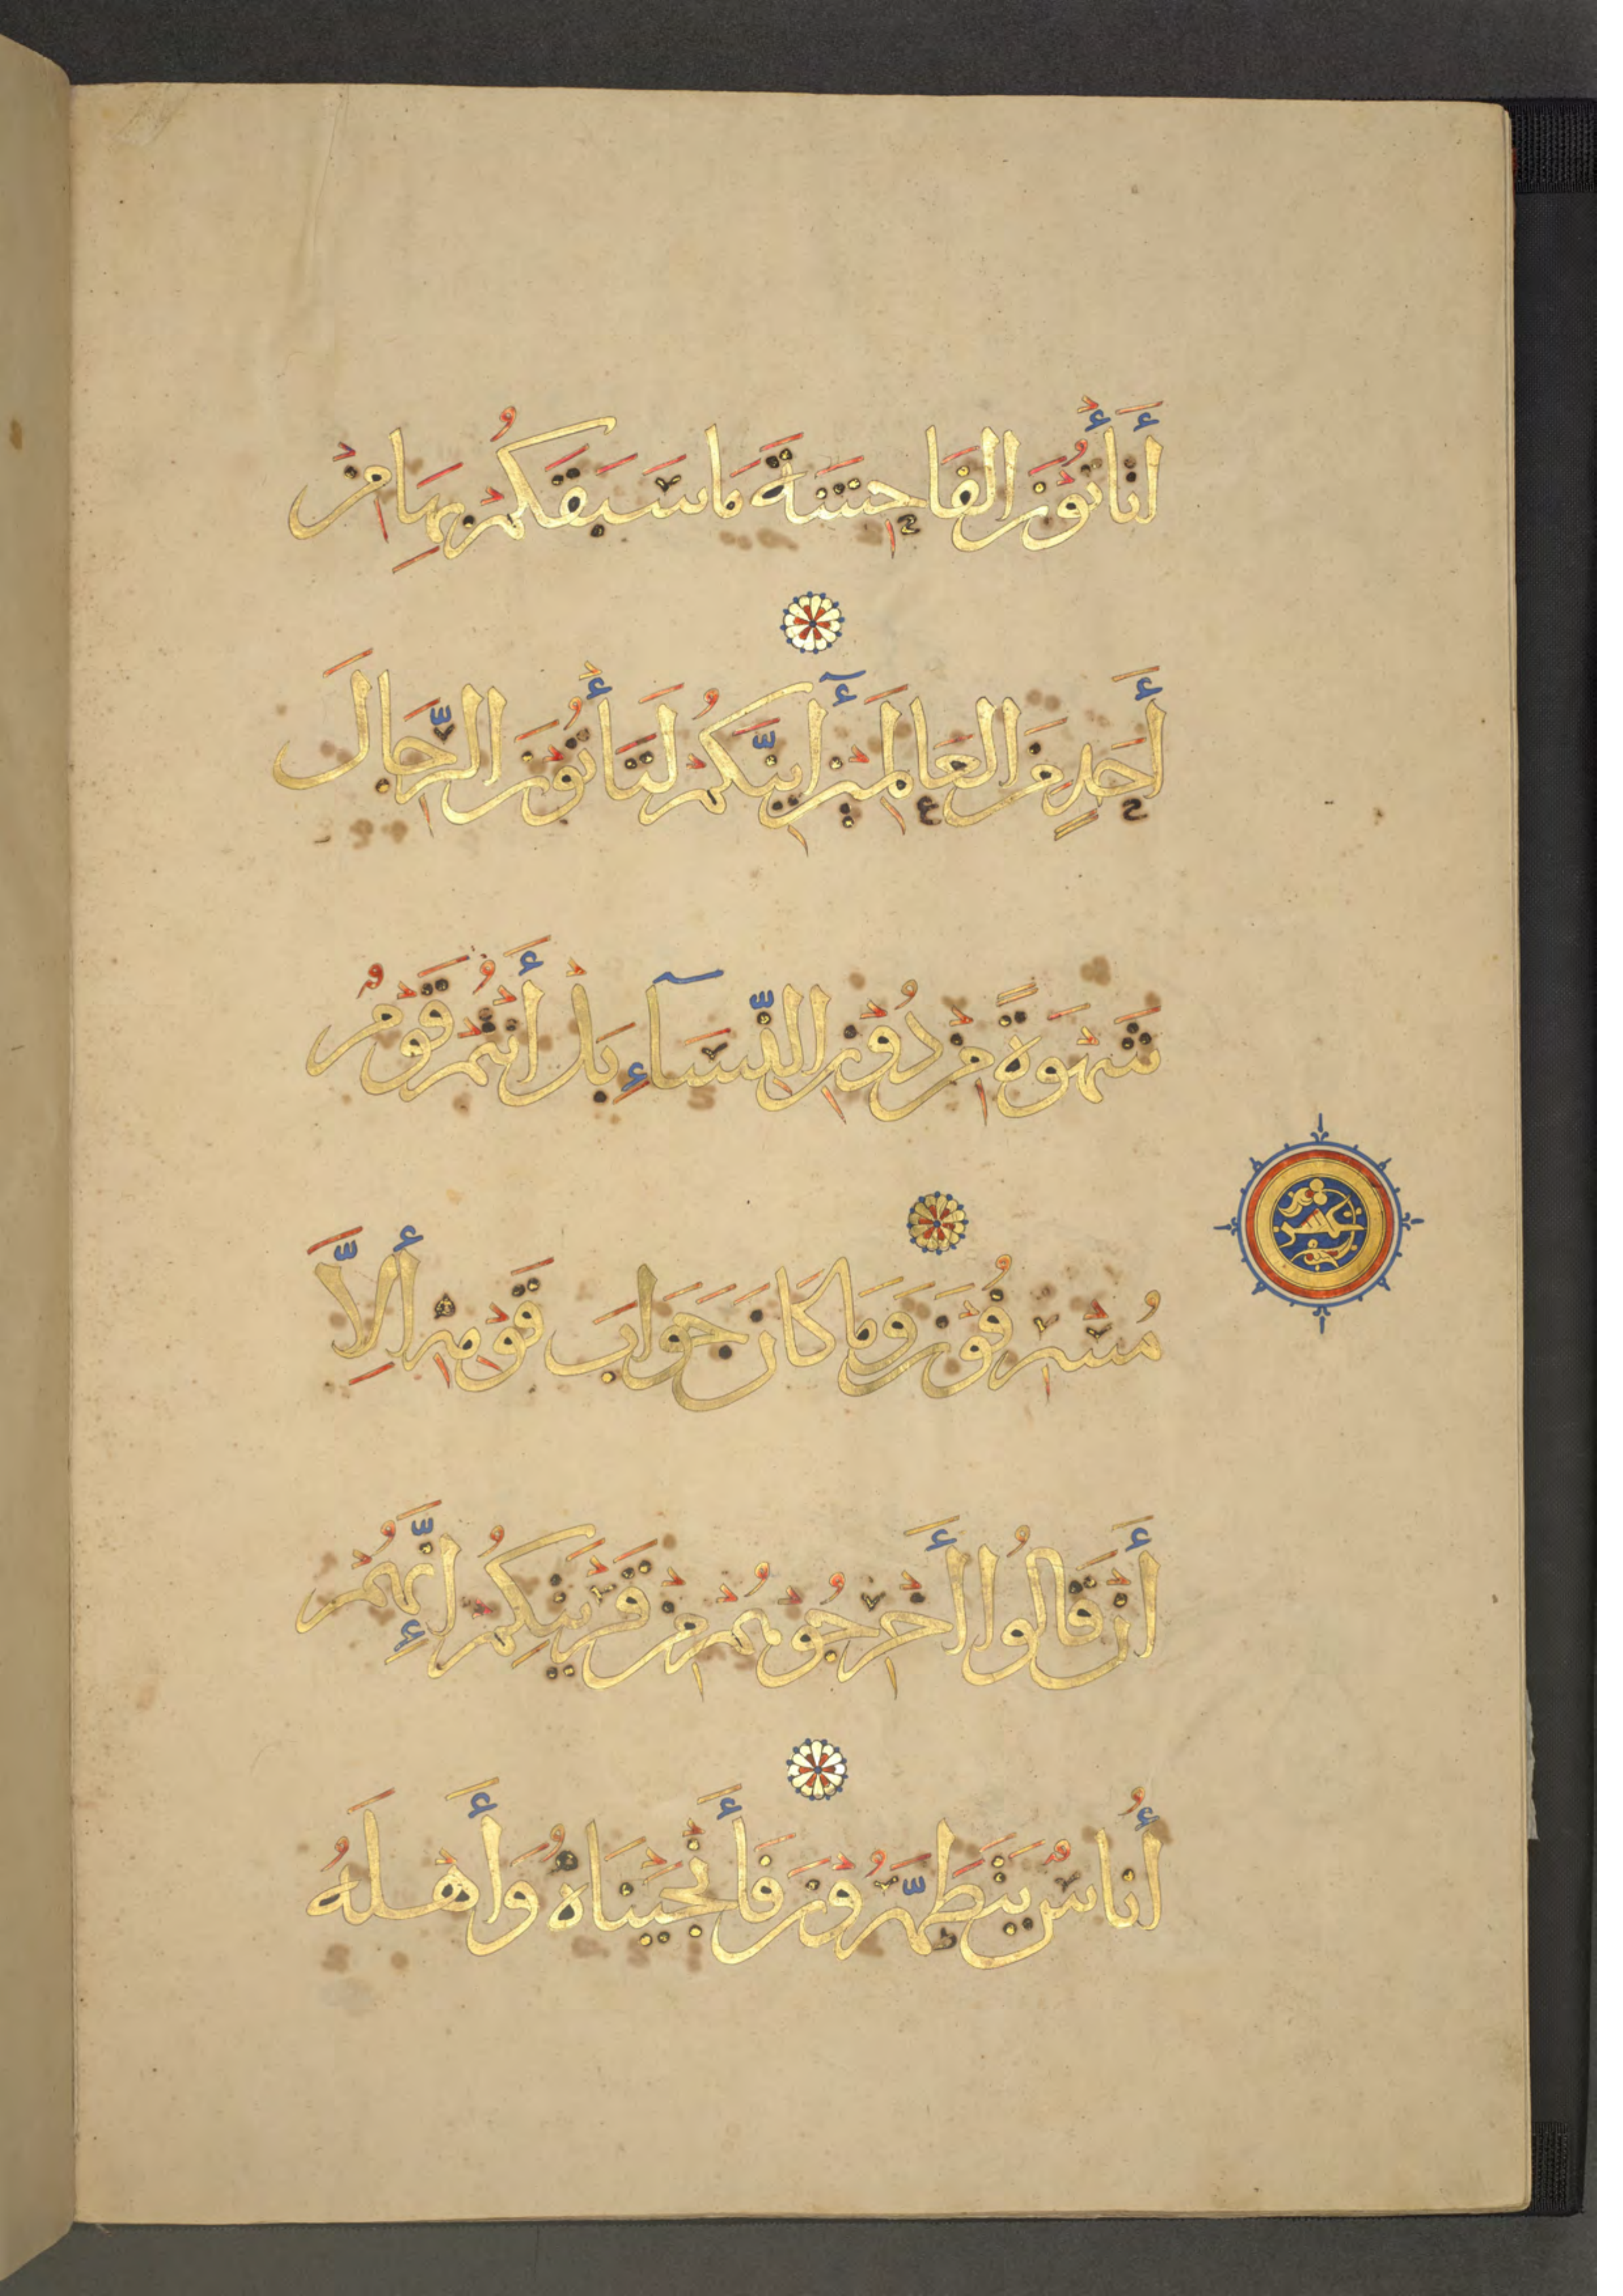 أَتَأْتُونَ الفَاحِشَةَ مَا سَبَقَكُمْ بِهَا مِنْ
أَحَدٍ مِنَ العَالَمِينَ أَيِنَّكُمْ لَتَأْتُونَ الرِّجَالَ
شَهْوَةً مِنْ دُونِ النِّسَآءِ بَلْ أَنْتُمْ قَوْمٌ
مُسْرِفُونَ وَمَا كَانَ جَوَابَ قَوْمِهِ أِلاَّ
أَنْ قَالُوا أَخْرِجُوهُمْ مِنْ قَرْيَتِكُمْ إِنَّهُمْ
أُنَاسٌ يَتَطَهَّرُونَ فَأَنْجَيْنَاهُ وَأَهْلَهُ